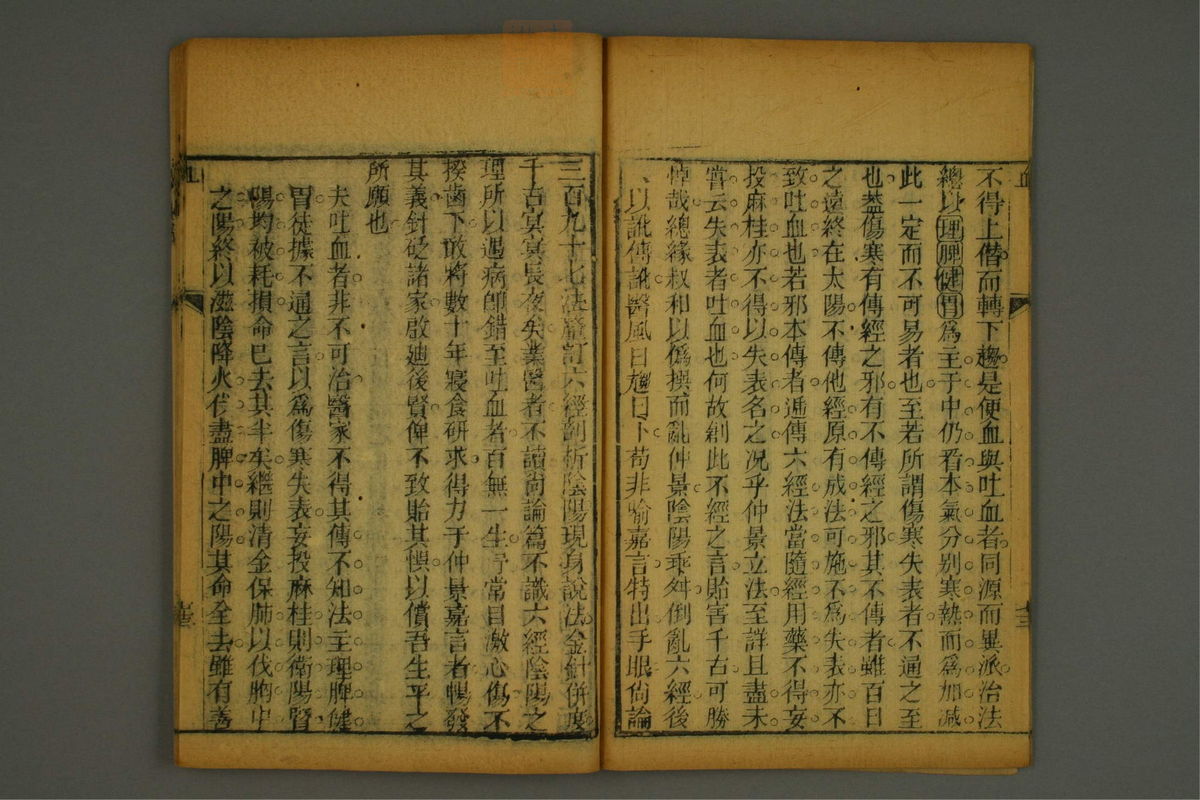 不得上僭而轉下趨是便血與吐血者同源而異派治法
總以理脾健胃為主于中仍看本氣分别寒熱而為加減
此一定而不可易者也至若所謂傷寒失表者不通之至
也葢傷寒有傳經之邪有不傳經之邪其不傳者雖百日
之遠終在太陽不傳他經原有成法可施不為失表亦不
致吐血也若邪本傳者遞傳六經法當隨經用藥不得妄
投麻桂亦不得以失表名之况乎仲景立法至詳且盡未
嘗云失表者吐血也何故創此不經之言貽害千古可勝
悼哉總緣叔和以僞撰而亂仲景陰陽乖舛倒亂六經後
人以訛傳訛醫風日趨日下苟非喻嘉言特出手眼尚論
三百九十七法釐訂六經剖析陰陽現身說法金針併度
千古冥冥長夜矣業醫者不讀尚論篇不識六經陰陽之
理所以遇病即錯至吐血者百無一生予常目激心傷不
揆齒下敢將數十年寢食研求得力于仲景嘉言者暢發
其義針砭諸家啟廸後賢俾不致貽其悞以償吾生平之
所願也
夫吐血者非不可治醫家不得其傳不知法主理脾健
胃徒據不通之言以為傷寒失表妄投麻桂則衛陽腎
陽均被耗損命已去其半矣繼則清金保肺以伐胸中
之陽終以滋陰降火伐盡脾中之陽其命全去雖有善